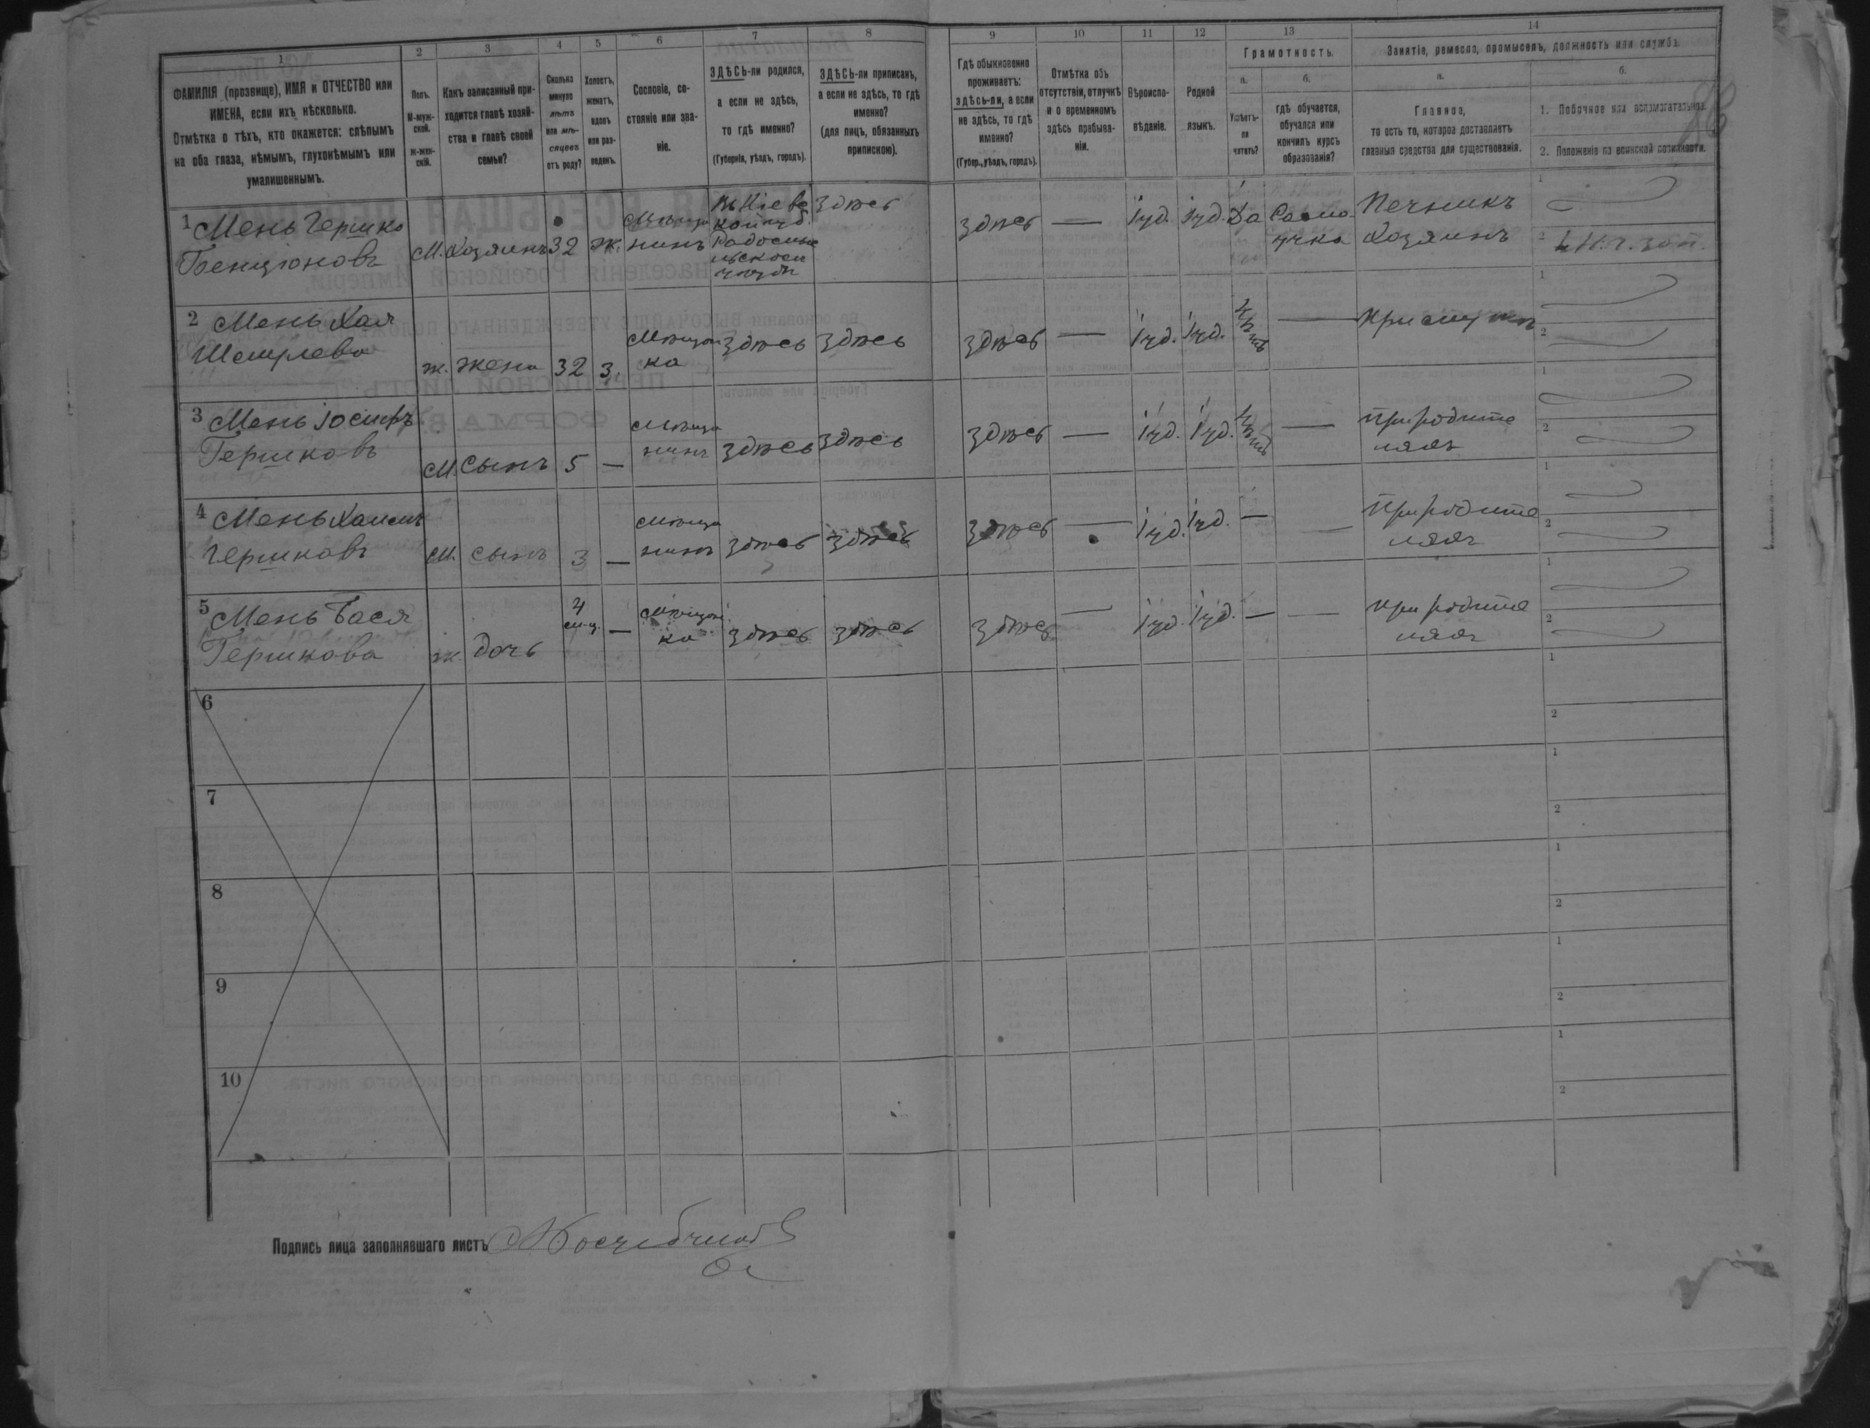 1 2 3 4 5 6 7 8 9 10 11 12 13 14
ФАМИЛІЯ (прозвище), ИМЯ и ОТЧЕСТВО или
ИМЕНА, если ихъ нѣсколько.
Отмѣтка о тѣхъ, кто окажется: слѣпымъ
на оба глаза, нѣмымъ, глухонѣмымъ или
умалишеннымъ.
Полъ.
М-муж-
ской.
Ж-жен-
скій.
Какъ записанный при-
ходится главѣ хозяй-
ства и главѣ своей
семьи?
Сколько
минуло
лѣтъ
или мѣ-
сяцевъ
отъ роду?
Холостъ,
женатъ,
вдовъ
или раз-
веденъ.
Сословіе, со-
стояніе или зва-
ніе.
ЗДѢСЬ-ли родился,
а если не здѣсь,
то гдѣ именно?
(Губернія, уѣздъ, городъ).
ЗДѢСЬ-ли приписанъ,
а если не здѣсь, то гдѣ
именно?
(для лицъ, обязанныхъ
припискою).
Гдѣ обыкновенно
проживаетъ:
здѣсь-ли, а если
не здѣсь, то гдѣ
именно?
(Губер., уѣздъ, городъ).
Отмѣтка объ
отсутствіи, отлучкѣ
и о временномъ
здѣсь пребыва-
ніи.
Вѣроиспо-
вѣданіе.
Родной
языкъ.
Грамотность.
а.
Умѣетъ-
ли
читать?
б.
гдѣ обучается,
обучался или
кончилъ курсъ
образованія?
Занятіе, ремесло, промыселъ, должность или служба.
а.
Главное,
то есть то, которое доставляетъ
главныя средства для существованія.
б.
1. Побочное или вспомогательное.
2. Положеніе по воинской повинности.
1 Мень Гершко
Бенціоновъ
М. Хозяинъ 32 ж.
Мѣща
нинъ
Въ Кіевс
кой губ.
здѣсь
здѣсь — іуд. іуд. Да
Само
учка
Печникъ
Хозяинъ
2 Мень Хая
Шмулева
ж. жена 32 з.
Мѣщан
ка
здѣсь здѣсь
здѣсь — іуд. іуд. нѣтъ — при мужѣ
3 Мень Іосифъ
Гершковъ
М. сынъ 5 —
Мѣща
нинъ
здѣсь здѣсь
здѣсь — іуд. іуд. нѣтъ —
при родите
ляхъ
4 Мень Хаимъ
Гершковъ
М. сынъ 3 —
Мѣща
нинъ
здѣсь здѣсь
здѣсь — іуд. іуд. — —
при родите
ляхъ
5 Мень Бася
Гершкова
ж. дочь
4
м-ц. —
Мѣщан
ка
здѣсь здѣсь
здѣсь — іуд. іуд. — —
при родите
ляхъ
6
7
8
9
10
Подпись лица заполнявшаго листъ